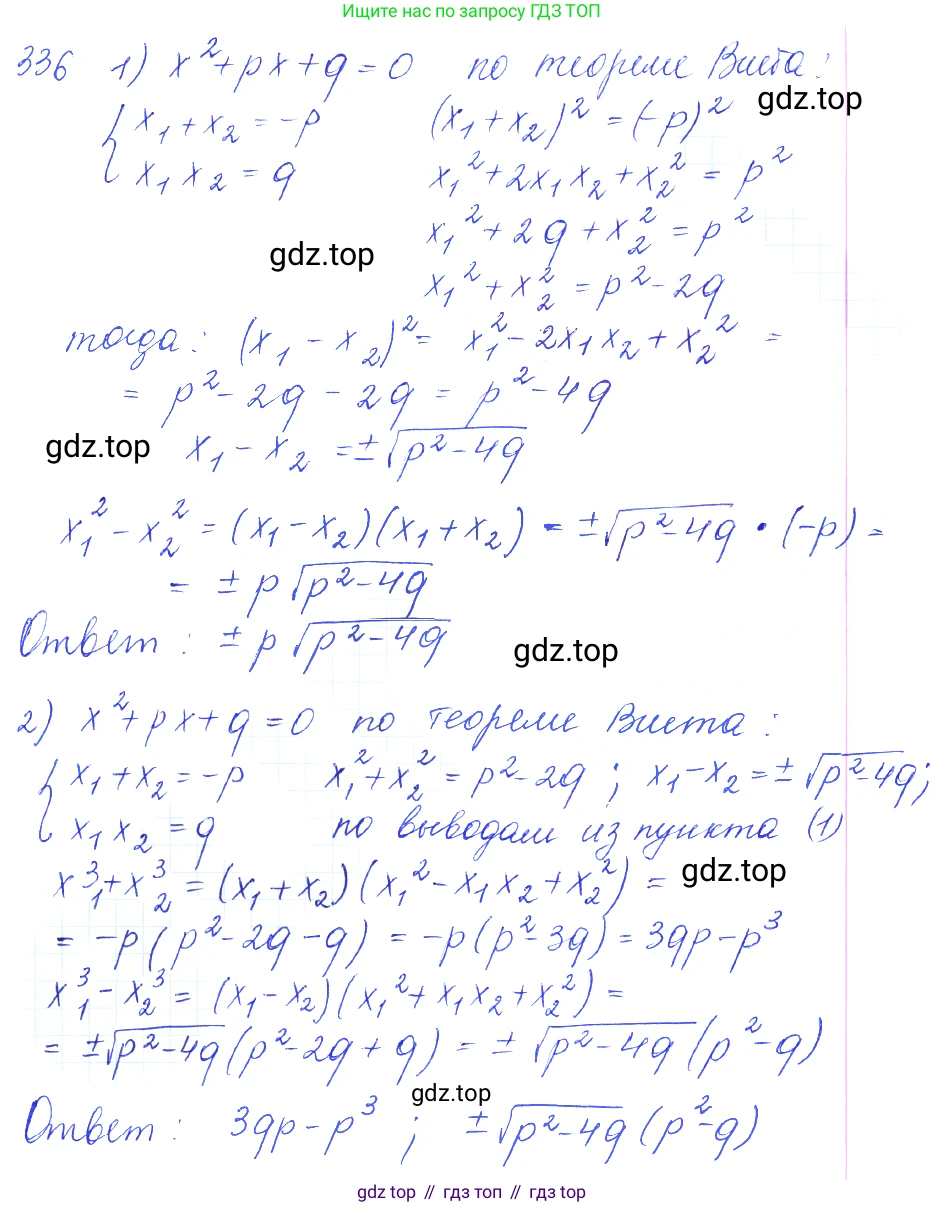 Ищите нас по запросу ГДЗ ТОП
336 1) x²+px+q=0 по теореме Виета:
gdz.top
{ x₁+x₂=-p (x₁+x₂)²=(-p)²
x₁x₂=q x₁²+2x₁x₂+x₂²=p²
x₁²+2q+x₂²=p²
gdz.top
x₁²+x₂²=p²-2q
тогда: (x₁-x₂)²=x₁²-2x₁x₂+x₂²=
=p²-2q-2q=p²-4q
gdz.top x₁-x₂=±√(p²-4q)
x₁²-x₂²=(x₁-x₂)(x₁+x₂)=±√(p²-4q)·(-p)=
=±p√(p²-4q)
Ответ: ±p√(p²-4q)
gdz.top
2) x²+px+q=0 по теореме Виета:
{ x₁+x₂=-p x₁²+x₂²=p²-2q; x₁-x₂=±√(p²-4q);
x₁x₂=q по выводам из пункта (1)
x₁³+x₂³=(x₁+x₂)(x₁²-x₁x₂+x₂²)= gdz.top
=-p(p²-2q-q)=-p(p²-3q)=3qp-p³
x₁³-x₂³=(x₁-x₂)(x₁²+x₁x₂+x₂²)=
=±√(p²-4q)(p²-2q+q)=±√(p²-4q)(p²-q)
gdz.top
Ответ: 3qp-p³; ±√(p²-4q)(p²-q)
gdz top // гдз топ // гдз top